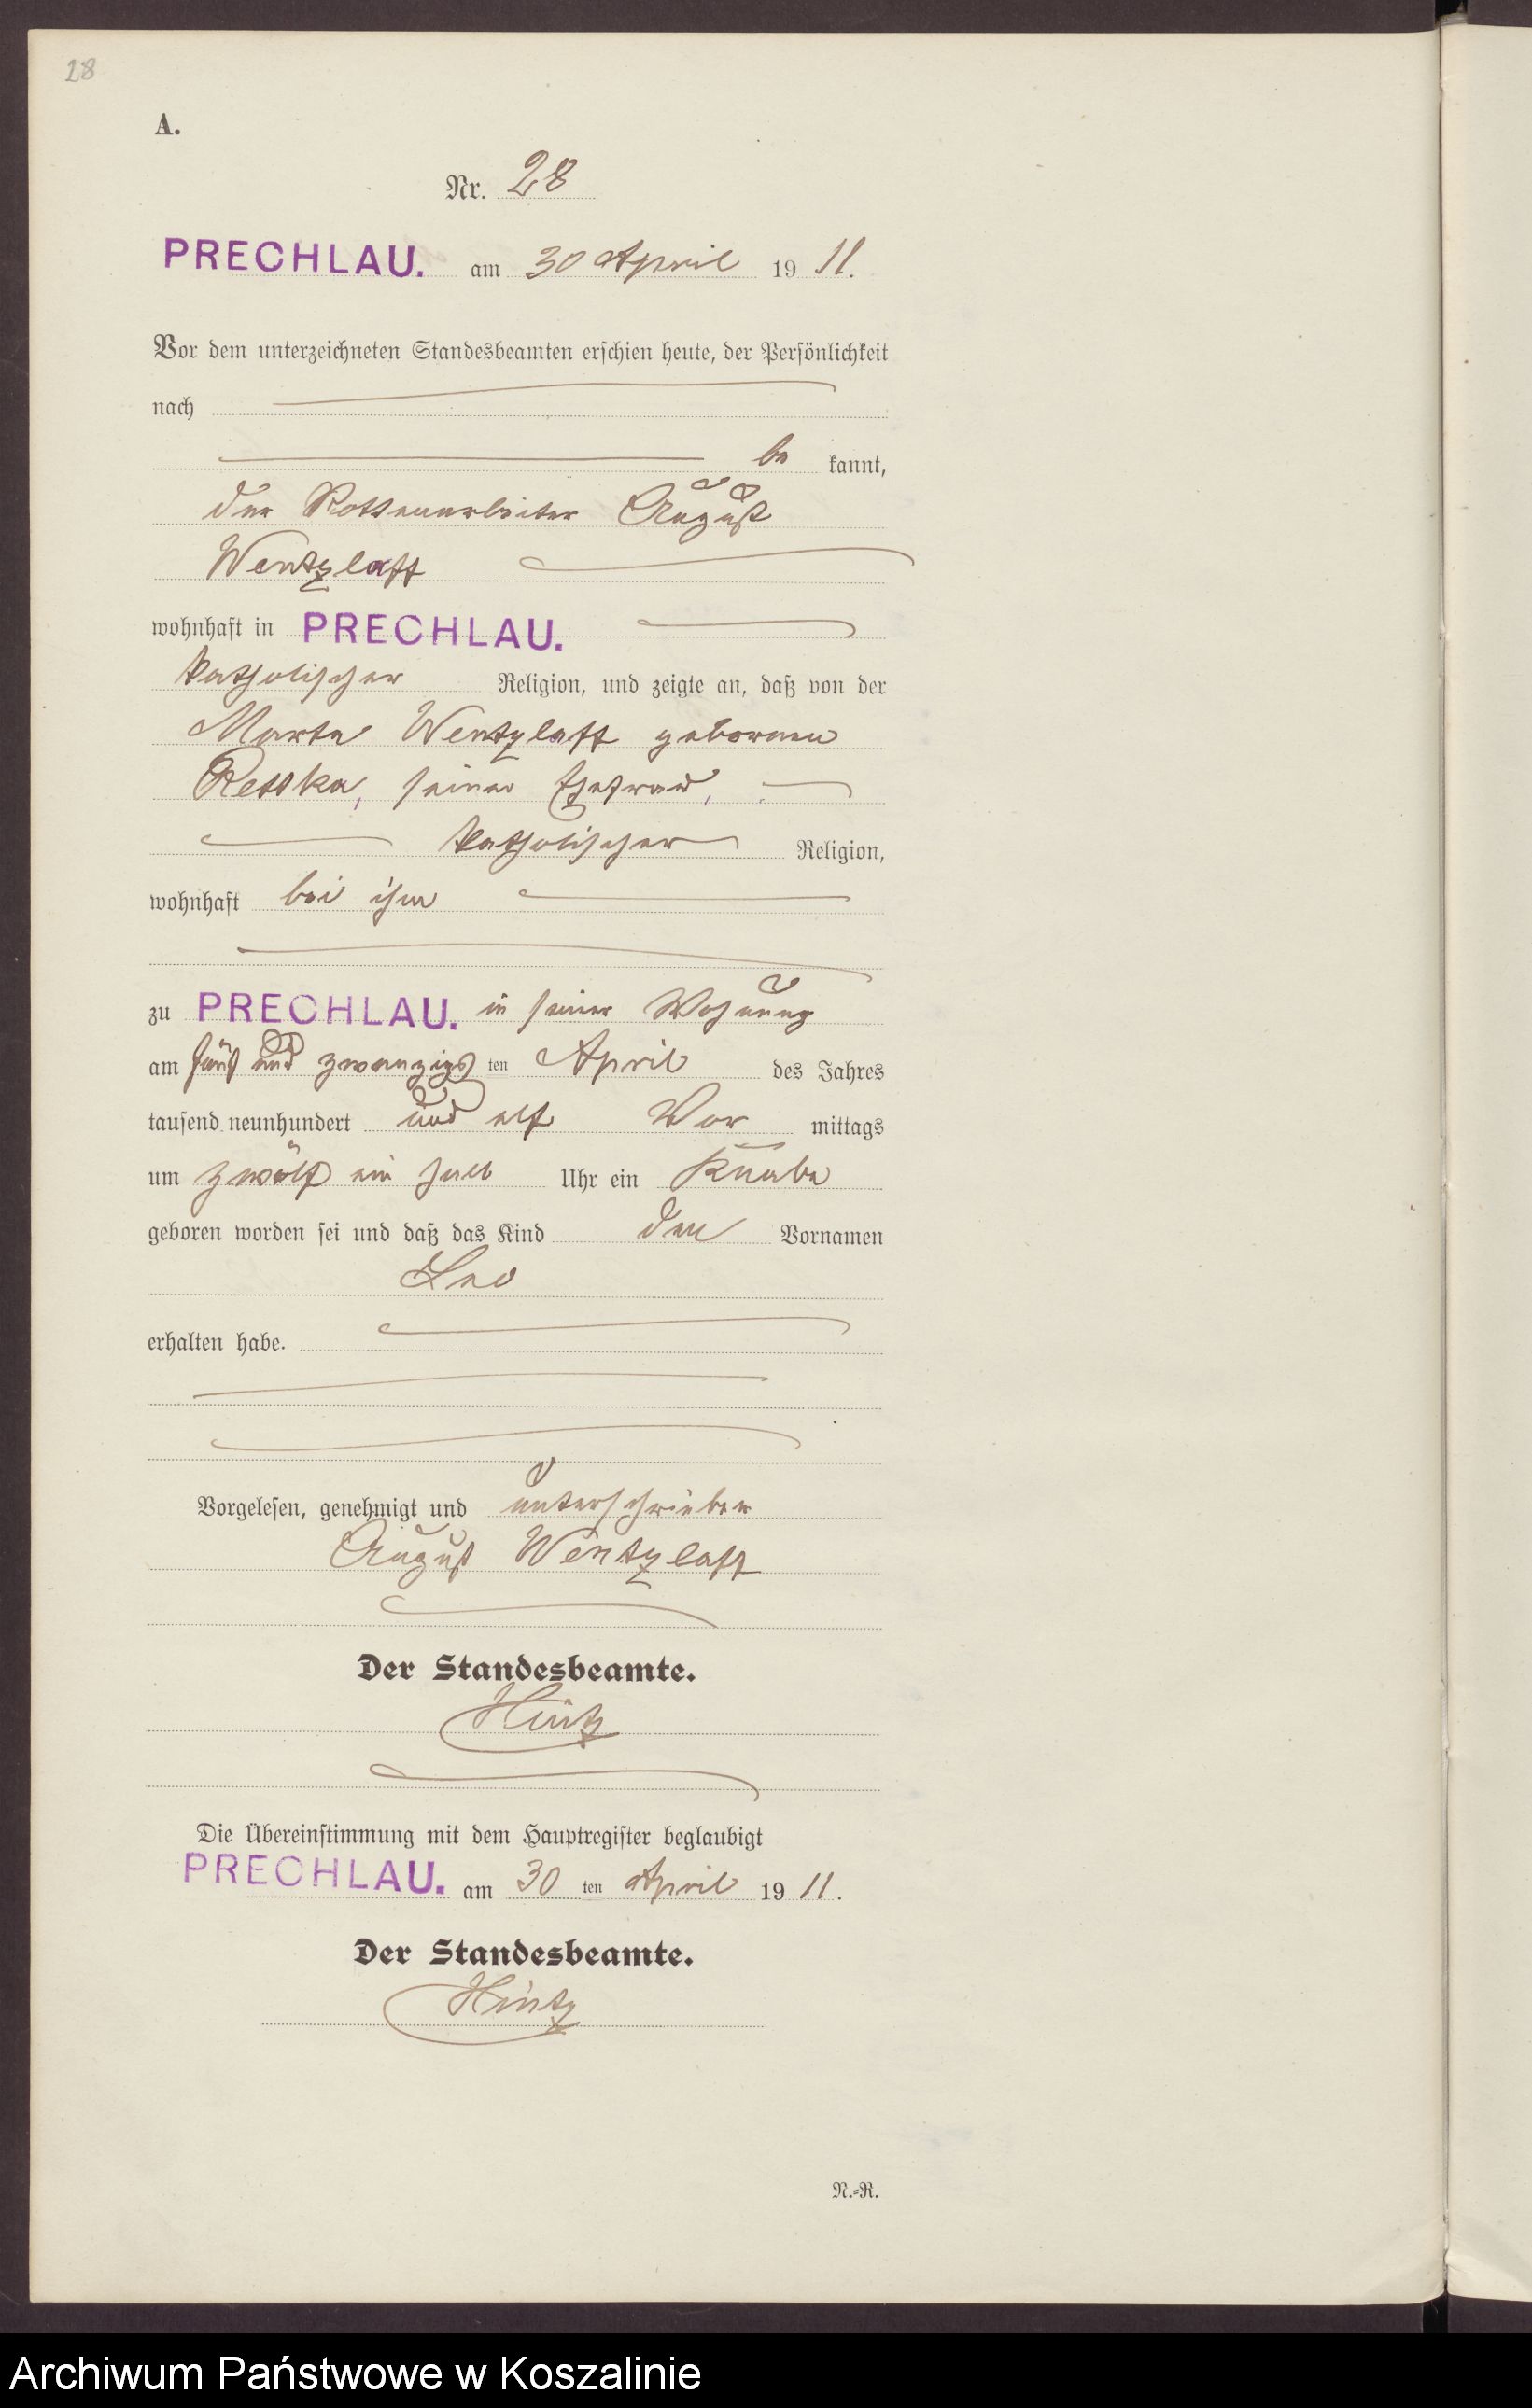 28
A.
Nr. 28
PRECHLAU. am 30 April 19 11.
Vor dem unterzeichneten Standesbeamten erschien heute, der Persönlichkeit
nach
be kannt,
der Rottenarbeiter August
Wentzlaff
wohnhaft in PRECHLAU.
katholischer Religion, und zeigte an, daß von der
Marta Wentzlaff gebornen
Resska, seiner Ehefrau,
katholischer Religion,
wohnhaft bei ihm
zu PRECHLAU. in seiner Wohnung
am fünf und zwanzigs ten April des Jahres
tausend neunhundert und elf Vor mittags
um zwölf ein halb Uhr ein Knabe
geboren worden sei und daß das Kind den Vornamen
Leo
erhalten habe.
Vorgelesen, genehmigt und unterschrieben
August Wentzlaff
Der Standesbeamte.
Hintz
Die Übereinstimmung mit dem Hauptregister beglaubigt
PRECHLAU. am 30 ten April 19 11.
Der Standesbeamte.
Hintz
N.=R.
Archiwum Państwowe w Koszalinie